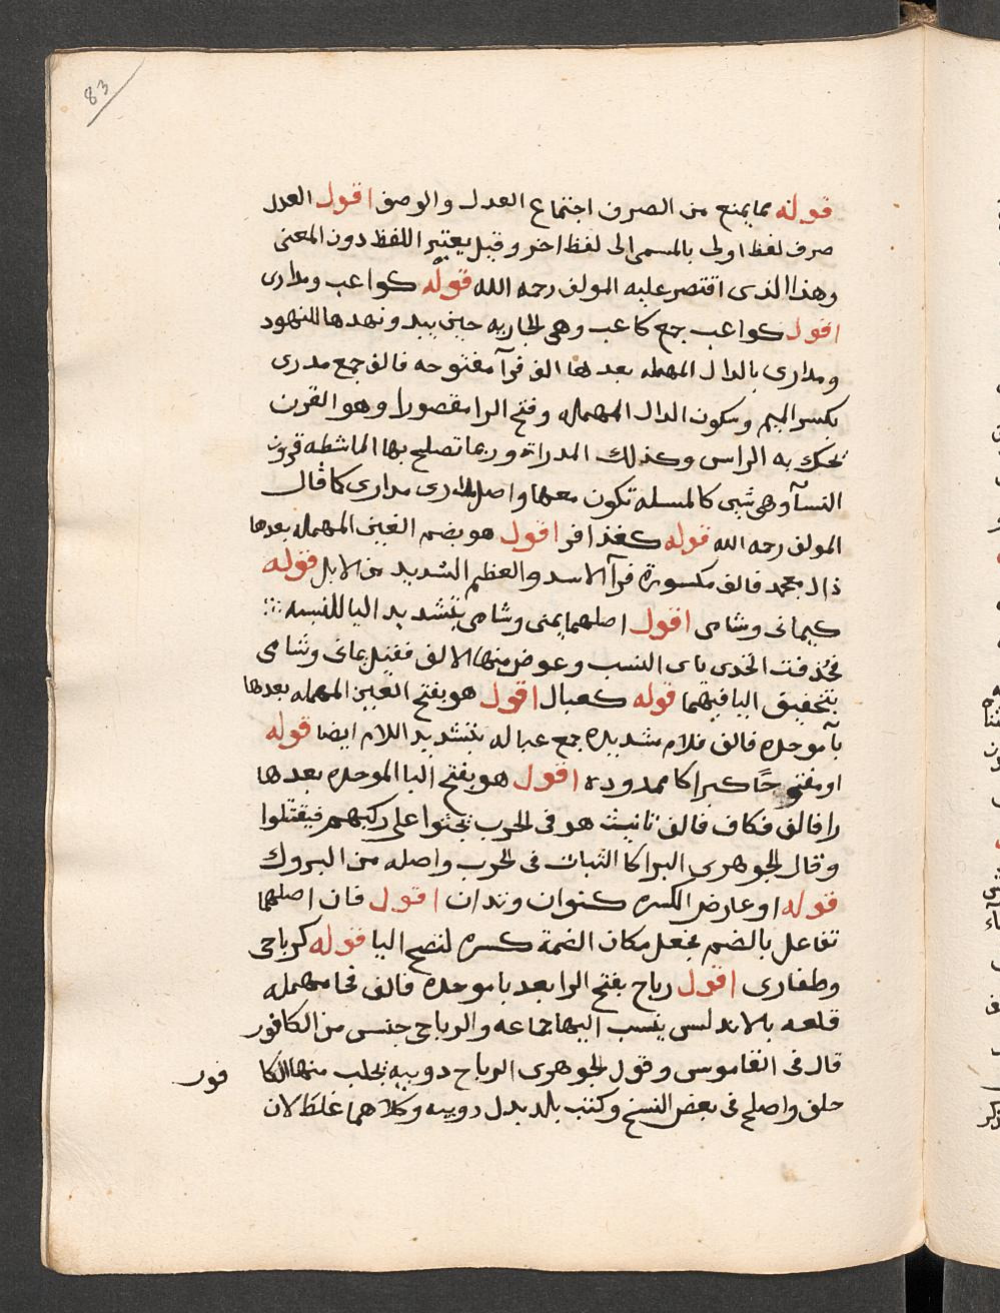 83
قوله مما يمنع من الصرف اجتماع العدل والوصف اقول العدل
صرف لفظ اولى بالمسمى الى لفظ اخر وقيل يعتبر اللفظ دون المعنى
وهذا الذى اقتصر عليه المولف رحمه الله قوله كواعب ومدارى
اقول كواعب جمع كاعب وهى الجاريه حين يبدو نهدها للنهود
ومدارى بالدال المهمله بعدها الف فرآ مفتوحه فالف جمع مدرى
بكسر الميم وسكون الدال المهمله وفتح الرا مقصورا وهو القرن
تحك به الراس وكذلك المدراة وربما تصلح بها الماشطه قرون
النسآ وهى شى كالمسله تكون معها واصل مدارى مدارى كما قال
المولف رحمه الله قوله كغذافر اقول هو بضم الغين المهمله بعدها
ذال معجمه فالف مكسورة فرآ الاسد والعظيم الشديد من الابل قوله
كيمانى وشامى اقول اصلهما يمنى وشامى بتشديد اليا للنسبه
فحذفت احدى ياى النسب وعوض منها الالف فقيل يمانى وشامى
بتخفيف اليا فيهما قوله كعبال اقول هو بفتح العين المهمله بعدها
بآ موحده فالف فلام شديده جمع عباله بتشديد اللام ايضا قوله
او مفتوحًا كبراكا ممدوده اقول هو بفتح البا الموحده بعدها
را فالف فكاف فالف تانيث هو فى الحرب تجثوا على ركبهم فيقتتلوا
وقال الجوهرى البراكا الثبات فى الحرب واصله من البروك
قوله او عارض الكسره كتوان وتدان اقول فان اصلهما
تفاعل بالضم فجعل مكان الضمة كسره لتصح اليا قوله كرباحى
وظفارى اقول رباح بفتح الرا بعد با موحده فالف فحا مهمله
قلعه بالاندلس ينسب اليها جماعه والرباحى جنس من الكافور
قال فى القاموس وقول الجوهرى الرباح دويبه يحلب منها الكا فور
خلف واصلح فى بعض النسخ وكتب بلد بدل دويبه وكلاهما غلط لان